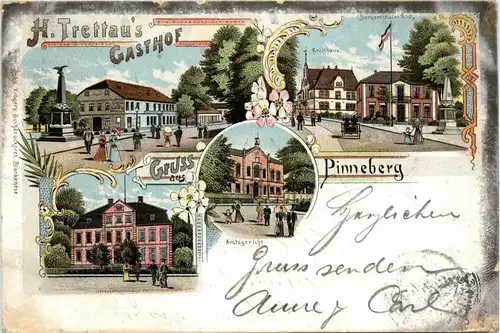 H. Trettau's
GASTHOF
Kreishaus
Gruss
aus
Pinneberg
Amtsgericht
Herzlichen
Gruss senden
Anne & Carl